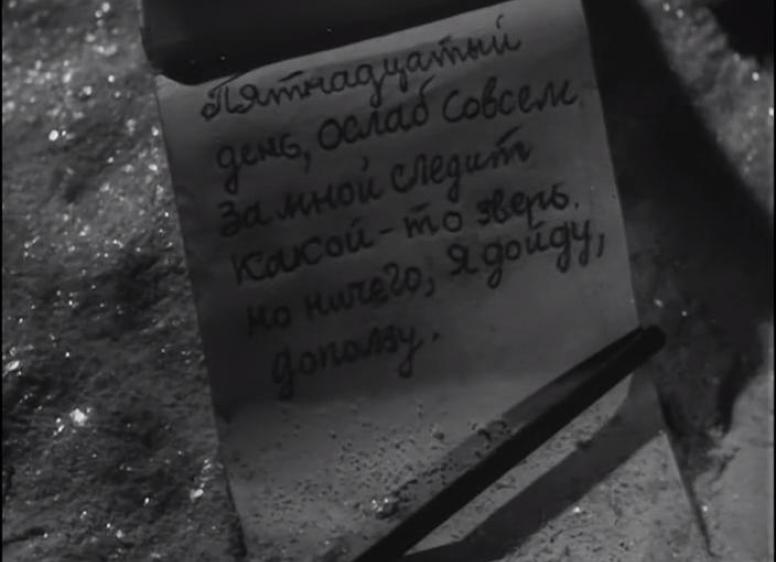 Пятнадцатый
день, ослаб совсем
за мной следит
какой-то зверь.
но ничего, я дойду,
доползу.